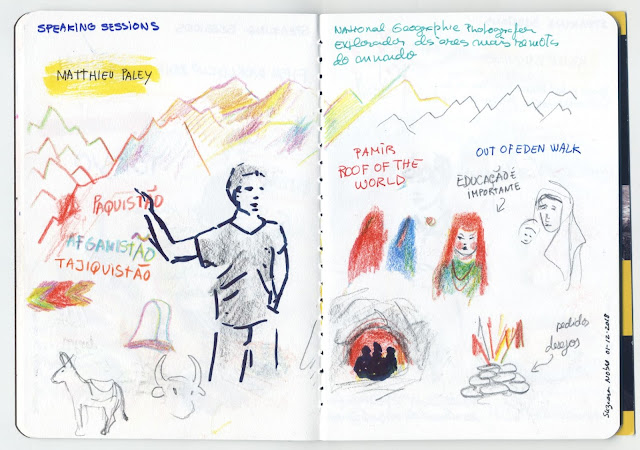 SPEAKING SESSIONS
MATTHIEU PALEY
PAQUISTÃO
AFGANISTÃO
TAJIQUISTÃO
NATIONAL Geographic Photografer
explorador mais
do mundo
PAMIR
ROOF OF THE
WORLD
OUT OF EDEN WALK
EDUCAÇÃO É
IMPORTANTE
pedidos
desejos
01-12-2018